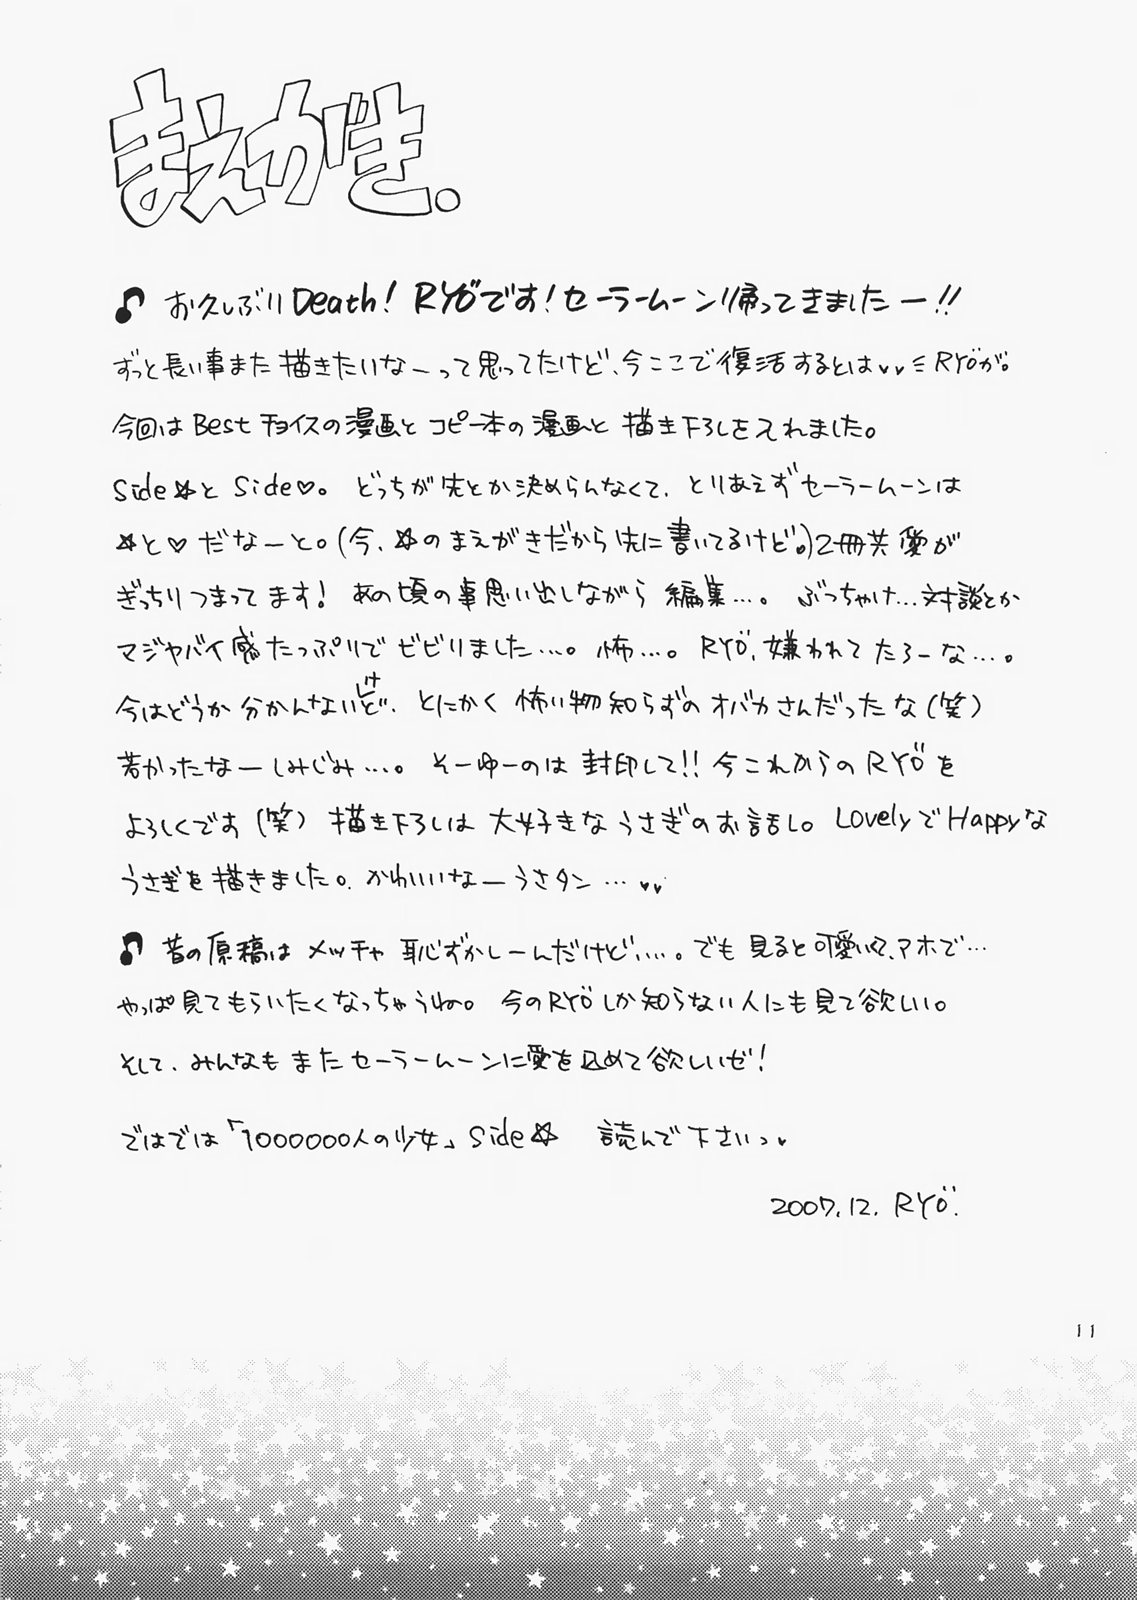 まえがき.
♪ お久しぶりDeath! RYÖです!セーラームーン帰ってきましたー!!
ずっと長い事また描きたいなーって思ってたけど、今ここで復活するとは♥♥ミRYÖが。
今回はBestチョイスの漫画とコピー本の漫画と描き下ろしをそれました。
Side☆とSide♡。どっちが先とか決めらんなくて、とりあえずセーラームーンは
☆と♡だなーと。(今、☆のまえがきだから先に書いてるけど。)2冊共愛が
ぎっちりつまってます!あの頃の事思い出しながら編集…。ぶっちゃけ…対談とか
マジヤバイ感たっぷりでビビりました…。怖…。RYÖ、嫌われてたろーな…。
今はどうか分かんないけど、とにかく怖い物知らずのオバカさんだったな(笑)
若かったなーしみじみ…。そーゆーのは封印して!!今これからのRYÖを
よろしくです(笑)描き下ろしは大好きなうさぎのお話し。LovelyでHappyな
うさぎを描きました。かわいいなーうさタン…♥♥
♪ 昔の原稿はメッチャ恥ずかしーんだけど…。でも見ると可愛いくて、アホで…
やっぱ見てもらいたくなっちゃうね。今のRYÖしか知らない人にも見て欲しい。
そして、みんなもまたセーラームーンに愛を込めて欲しいゼ!
ではでは「1000000人の少女」Side☆ 読んで下さいっ♥
2007.12. RYÖ.
11